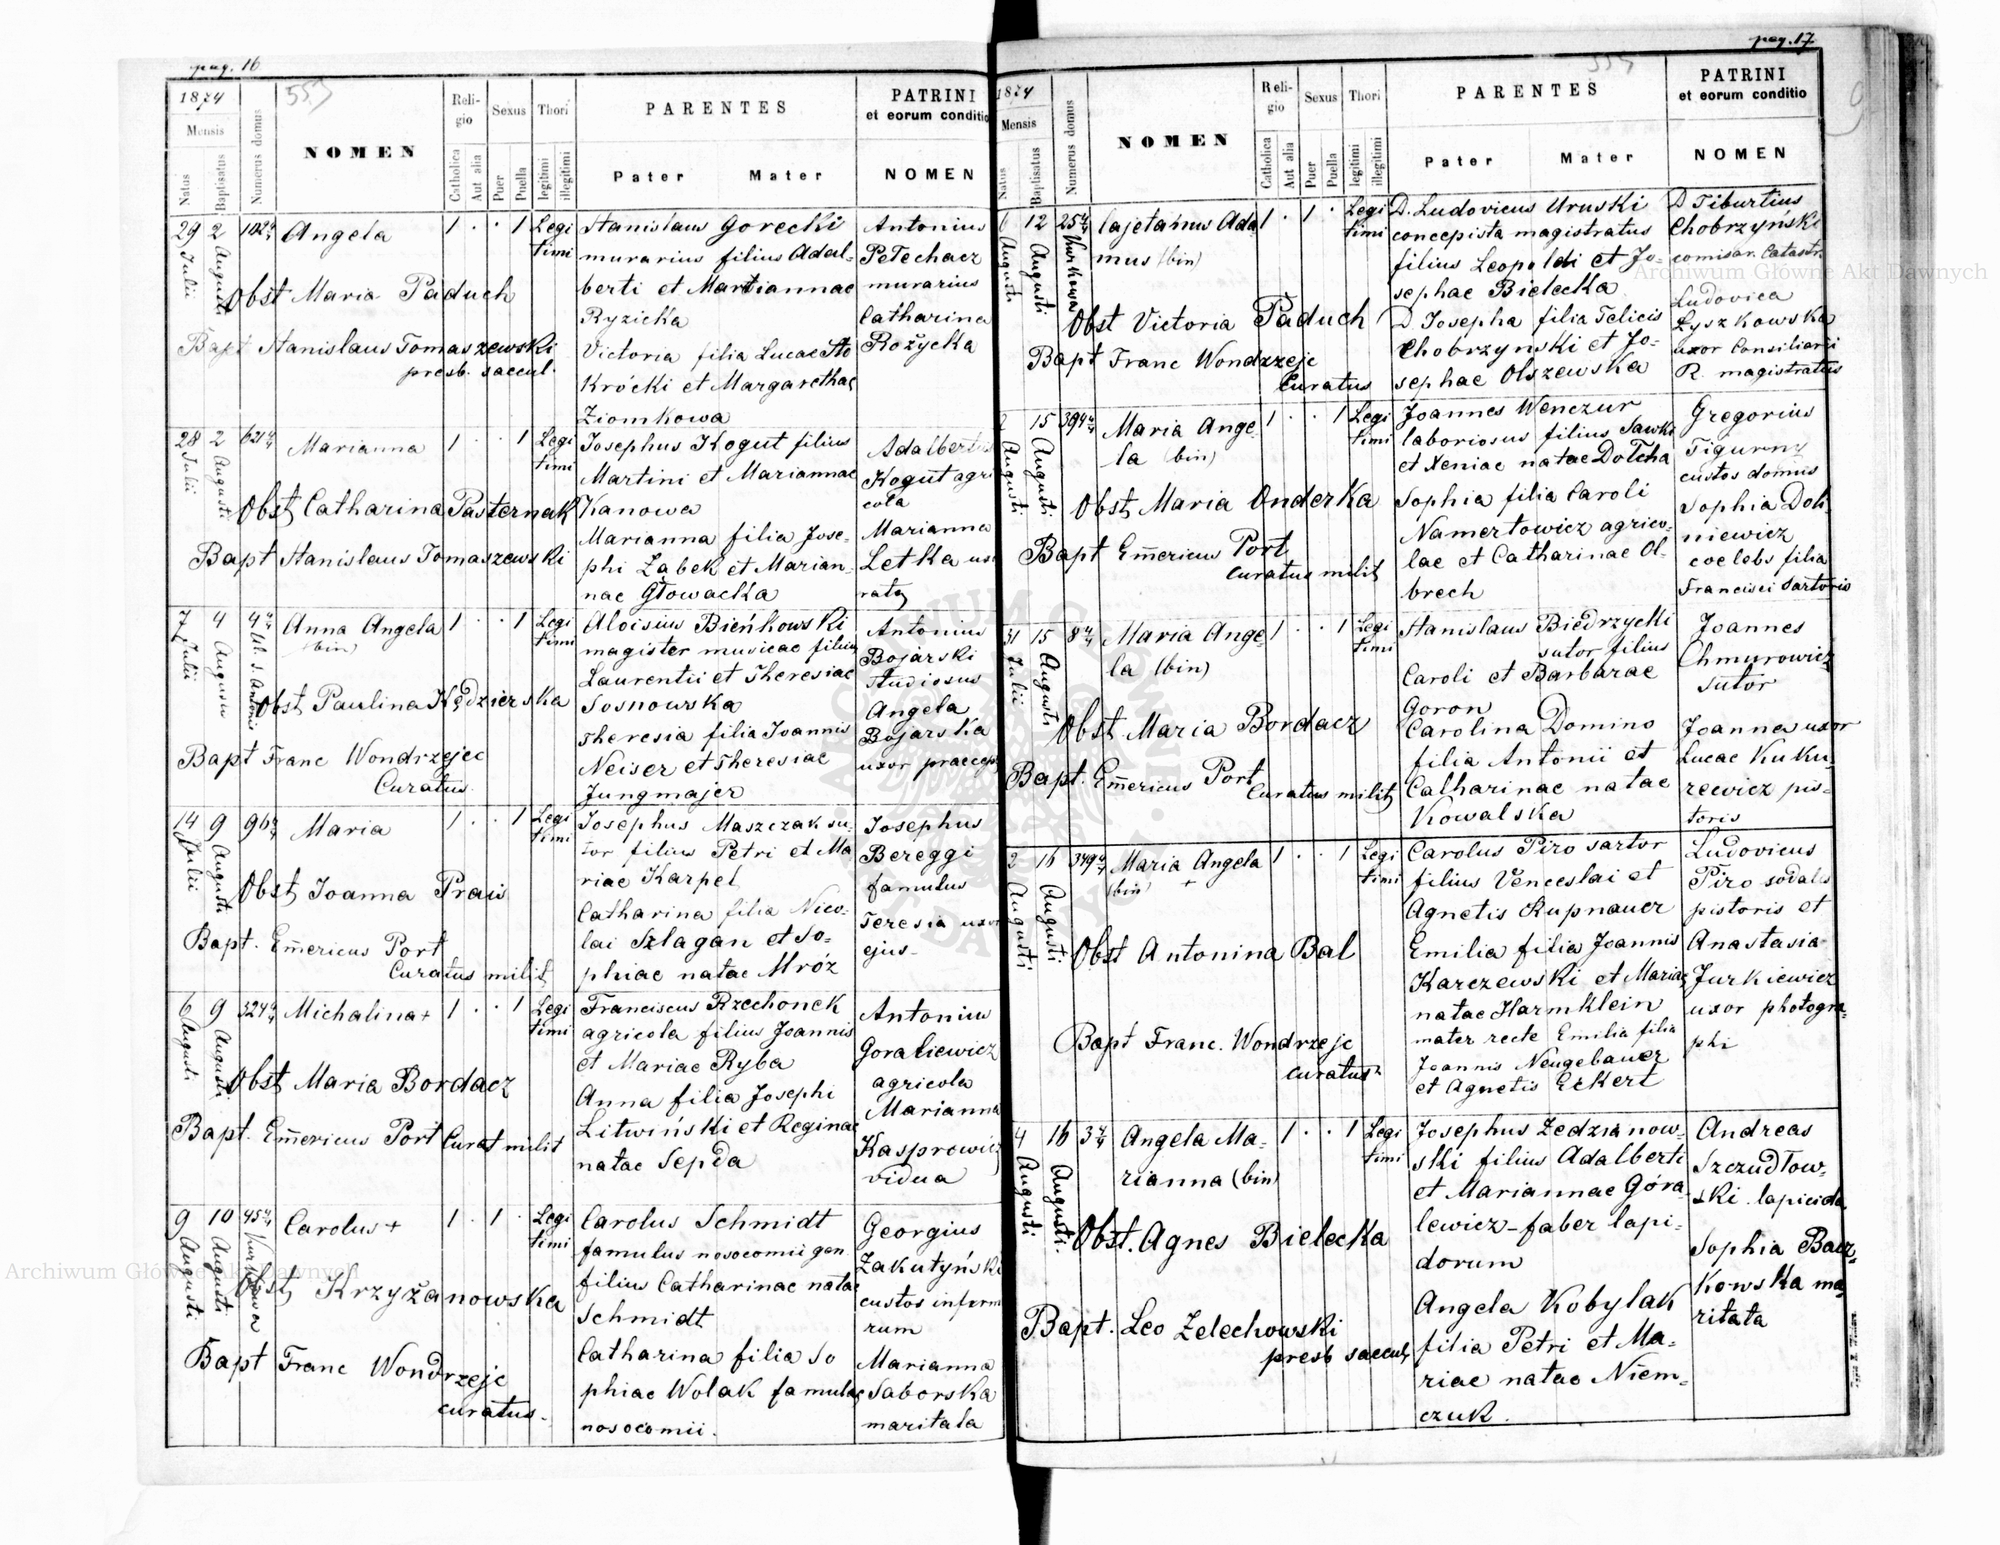 pag. 16
553
1874
Mensis
Natus
Baptisatus
Numerus domus
NOMEN
Reli-
gio
Catholica
Aut alia
Sexus
Puer
Puella
Thori
legitimi
illegitimi
PARENTES
Pater Mater
PATRINI
et eorum conditio
NOMEN
29 Julii
2 Augusti
Angela
1 . . 1 Legi
timi
Obst Maria Paduch
Bapt Stanislaus Tomaszewski
presb. saecul.
Stanislaus Gorecki
murarius filius Adal-
berti et Martiannae
Ryzicka
Victoria filia Lucae Sto
Krócki et Margarethae
Ziomkowa
Antonius
Petechacz
murarius
Catharina
Rożycka
28 Julii
2 Augusti
Marianna
1 . . 1 Legi
timi
Obst Catharina Pasternak
Bapt Stanislaus Tomaszewski
Josephus Kogut filius
Martini et Mariannae
Kanowa
Marianna filia Jose-
phi Żabek et Marian-
nae Głowacka
Adalbertus
Kogut agri
cola
Marianna
Letka uxo
rata
7 Julii
4 Augusti
Anna Angela
(bin)
1 . . 1 Legi
timi
Obst Paulina Kędzierska
Bapt Franc Wondrzejec
Curatus
Aloisius Bieńkowski
magister musicae filius
Laurentii et Theresiae
Sosnowska
Theresia filia Joannis
Neiser et Theresiae
Jungmajer
Antonius
Bojarski
studiosus
Angela
Bojarska
uxor praecep
14 Julii
9 Augusti
Maria
1 . . 1 Legi
timi
Obst Joanna Prais
Bapt. Emericus Port
Curatus milit
Josephus Maszczak su-
tor filius Petri et Ma
riae Karpel
Catharina filia Nico-
lai Szlagan et So-
phiae natae Mróz
Josephus
Bereggi
famulus
Teresia uxor
ejus-
6 Augusti
9 Augusti
324
Michalina +
1 . . 1 Legi
timi
Obst Maria Bordacz
Bapt. Emericus Port Curat milit
Franciscus Rzechonek
agricola filius Joannis
et Mariae Ryba
Anna filia Josephi
Litwiński et Reginae
natae Sepda
Antonius
Goraliewicz
agricola
Marianna
Kasprowicz
vidua
9 Augusti
10 Augusti
Carolus +
1 . 1 . Legi
timi
Obst Krzyżanowska
Bapt Franc Wondrzejc
curatus-
Carolus Schmidt
famulus nosocomii gen
filius Catharinae natae
Schmidt
Catharina filia So
phiae Wolak famulae
nosocomii.
Georgius
Zakutyński
custos infirm
rum
Marianna
Saborska
maritata
pag. 17
1874
Mensis
Natus
Baptisatus
Numerus domus
NOMEN
Reli-
gio
Catholica
Aut alia
Sexus
Puer
Puella
Thori
legitimi
illegitimi
PARENTES
Pater Mater
PATRINI
et eorum conditio
NOMEN
6 Augusti
12 Augusti
Cajetanus Ada
mus (bin)
1 . 1 . Legi
timi
Obst Victoria Paduch
Bapt Franc Wondrzejc
Curatus
D. Ludovicus Uruski
concepista magistratus
filius Leopoldi et Jo-
sephae Bielecka
D Josepha filia Felicis
Chobrzynski et Jo-
sephae Olszewska
D Tiburtius
Chobrzyński
comisar. Catastr.
Ludovica
Łyszkowska
uxor Consiliarii
R. magistratus
2 Augusti
15 Augusti
394
Maria Ange
la (bin)
1 . . 1 Legi
timi
Obst Maria Onderka
Bapt Emericus Port
Curatus milit
Joannes Wenczur
laboriosus filius Sawki
et Xeniae natae Dotcha
Sophia filia Caroli
Namertowicz agrico-
lae et Catharinae Ol-
brech
Gregorius
Tigurny
custos domus
Sophia Doli-
niewicz
coelebs filia
Francisci Sartoris
31 Julii
15 Augusti
Maria Ange
la (bin)
1 . . 1 Legi
timi
Obst Maria Bordacz
Bapt. Emericus Port
Curatus milit
Stanislaus Biedrzycki
sutor filius
Caroli et Barbarae
Goron
Carolina Domino
filia Antonii et
Catharinae natae
Kowalska
Joannes
Chmurowicz
sutor
Joanna uxor
Lucae Kuku-
rewicz pis-
toris
2 Augusti
16 Augusti
349
Maria Angela
(bin) +
1 . . 1 Legi
timi
Obst Antonina Bal
Bapt Franc. Wondrzejc
curatus
Carolus Piro sartor
filius Venceslai et
Agnetis Rupnauer
Emilia filia Joannis
Karczewski et Mariae
natae Harmklein
mater recte Emilia filia
Joannis Neugebauer
et Agnetis Eckert
Ludovicus
Piro sodalis
pistoris et
Anastasia
Jurkiewicz
uxor photogra-
phi
4 Augusti
16 Augusti
Angela Ma-
rianna (bin)
1 . . 1 Legi
timi
Obst. Agnes Bielecka
Bapt. Leo Zelechowski
presb saecul
Josephus Zedzianow-
ski filius Adalberti
et Mariannae Góra-
lewicz - faber lapi-
dorum
Angela Kobylak
filia Petri et Ma-
riae natae Niem-
czuk.
Andreas
Szczudłow-
ski lapicida
Sophia Bacz-
kowska ma-
ritata
Archiwum Główne Akt Dawnych
Archiwum Główne Akt Dawnych